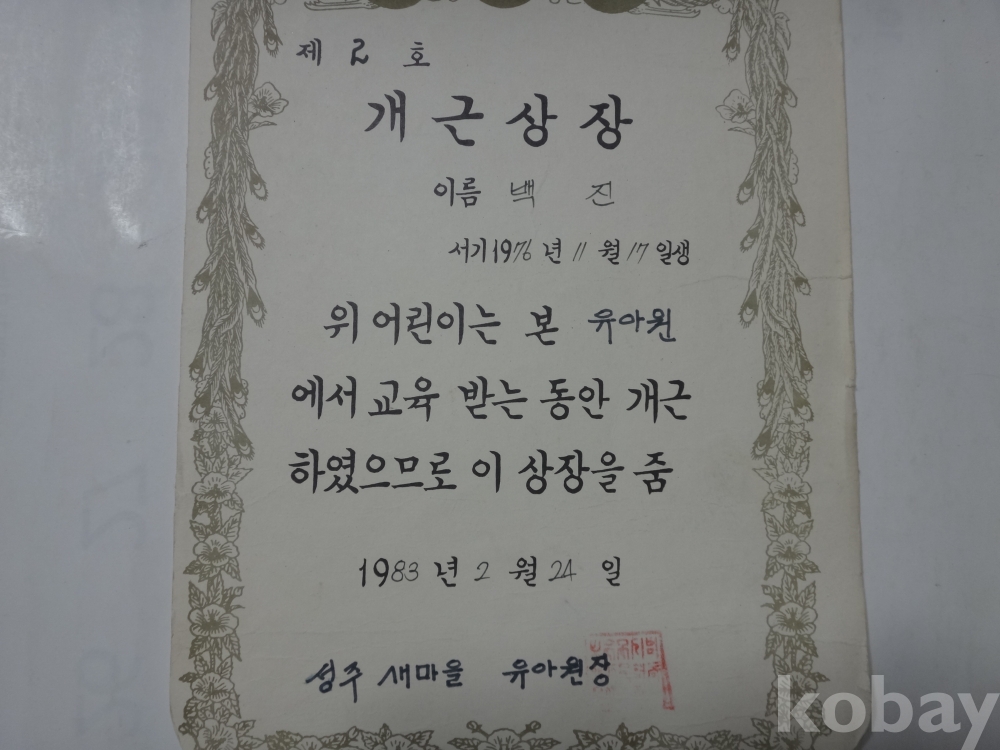 제 2 호
개근상장
이름 백 진
서기 1976 년 11 월 17 일생
위 어린이는 본 유아원
에서 교육 받는 동안 개근
하였으므로 이 상장을 줌
1983 년 2 월 24 일
성주 새마을 유아원장
kobay